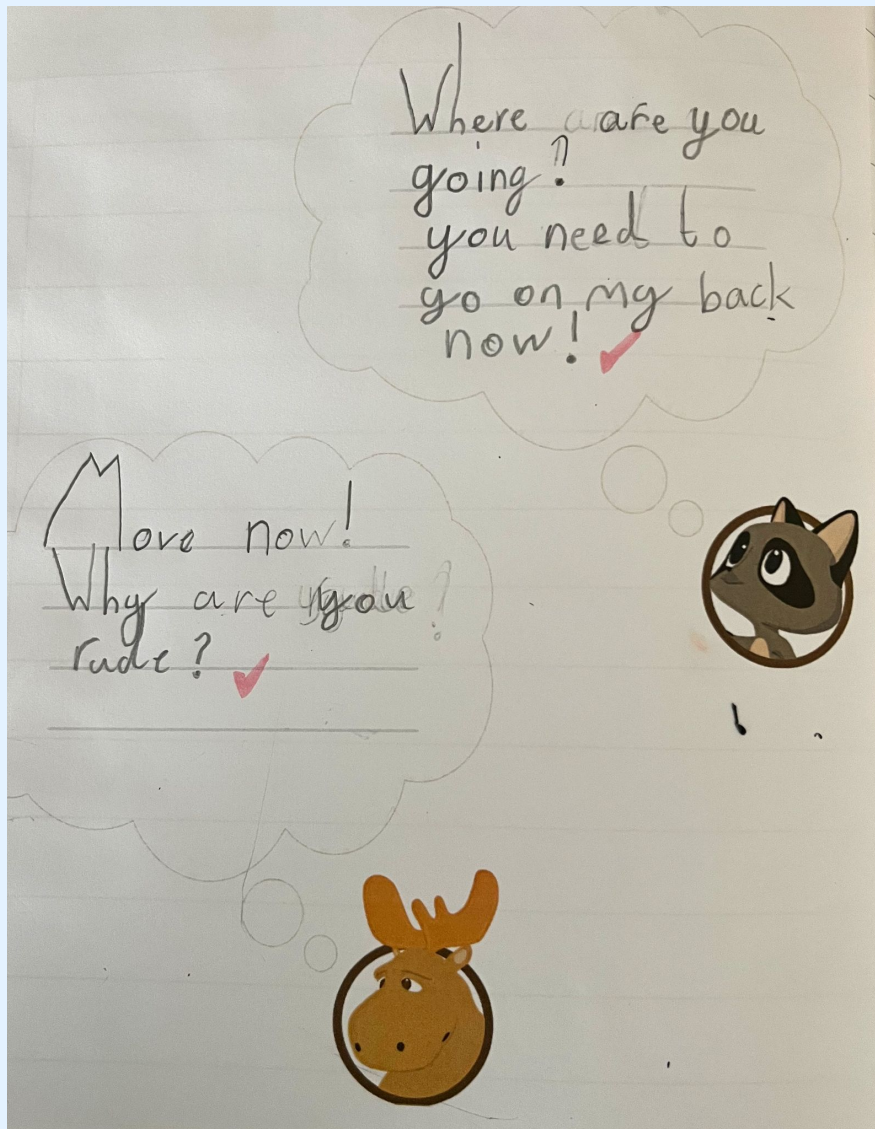 Where are you
going?
you need to
go on my back
now!
Move now!
Why are you
rude?